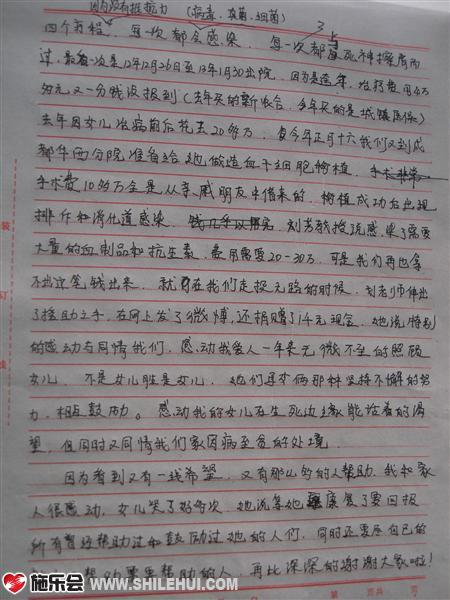 因为没有抵抗力 (病毒、真菌、细菌)
四个疗程,每一次都会感染,每一次都与死神擦肩而
过,最后一次是12年12月26日至13年1月30出院,因为是跨年,治疗费用4万
多元又一分钱没报到(去年买的新农合,今年买的是城镇医保)
去年因女儿治病前后花去20多万,今年正月十六我们又到成
都华西分院准备给她做造血干细胞移植,
手术费10多万全是从亲戚朋友中借来的,移植成功后出现
排斥和消化道感染,刘芳教授说感染了需要
大量的血制品和抗生素,费用需要20-30万,可是我们再也拿
不出这笔钱出来,就在我们走投无路的时候,刘老师伸出
了援助之手,在网上发了微博,还捐赠了1千元现金,她说特别
的感动与同情我们,感动我爱人一年来无微不至的照顾
女儿,不是女儿胜是女儿,她们母女俩那种坚持不懈的努
力,相互鼓励。感动我的女儿在生死边缘能活着的渴
望,但同时又同情我们家因病至贫的处境。
因为看到又有一线希望,又有那么多的人帮助,我和家
人很感动,女儿哭了好多次,她说等她康复了要回报
所有曾经帮助过和鼓励过她的人们,同时还要尽自己的
帮助要要帮助的人,再此深深的谢谢大家啦!
施乐会 WWW.SHILEHUI.COM
装
订
线
第 页共 页